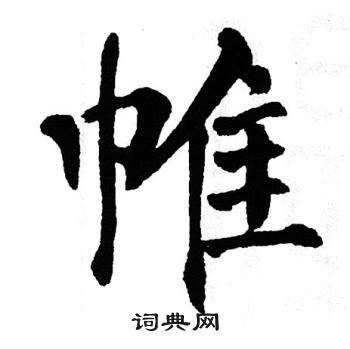 帷
词典网